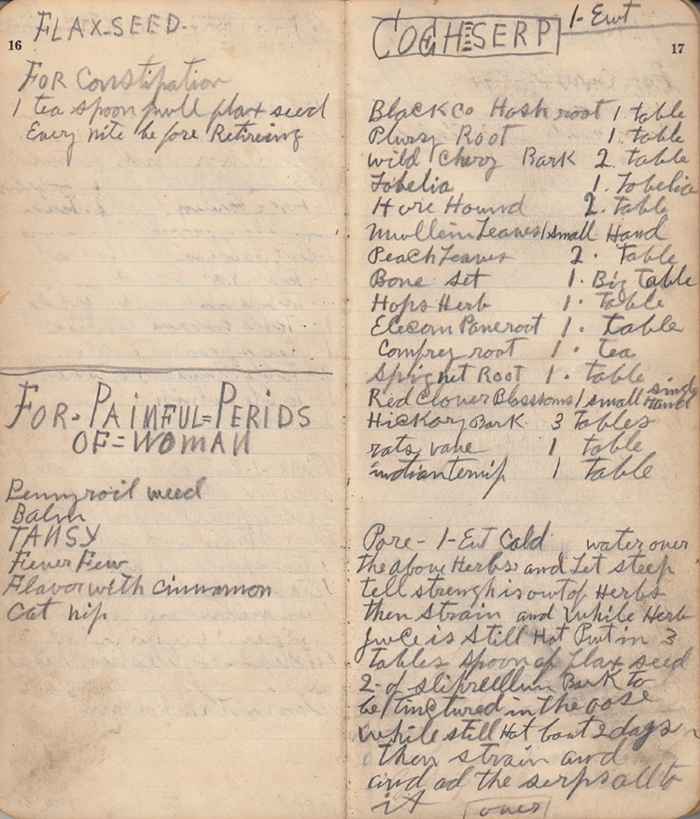 16
FLAX-SEED-
FOR Constipation
1 tea spoon full flax seed
Every nite before Retireing
FOR-PAINFUL=PERIDS
OF=WOMAN
Pennyroil weed
Balm
TANSY
Fever Few
Flavor with cinnamon
Cat nip
17
COGH=SERP 1-Ewt
Black Co Hosh root 1 table
Plursy Root 1. table
wild Chery Bark 2. table
Lobelia 1. Tobelia
Hore Hound 2. table
Mullein Leaves 1 small Hand
Peach Leaves 2. Table
Bone set 1. Big table
Hops Herb 1. table
Elecom Pane root 1. table
Comfrey root 1. tea
Spignet Root 1. table
Red Clover Blossoms 1 small Hand
Hickory Bark 3 tables
rats vane 1 table
indian ternip 1 table
Pore - 1-Ewt Cold water over
the above Herbs and Let steep
tell strengh is out of Herbs
then strain and while Herb
Juice is still Hot Put in 3
tables spoon of flax seed
2-of Bark to
be tinctured in the
while still Hot bout 2 days
then strain and
and ad the serps all to
it over